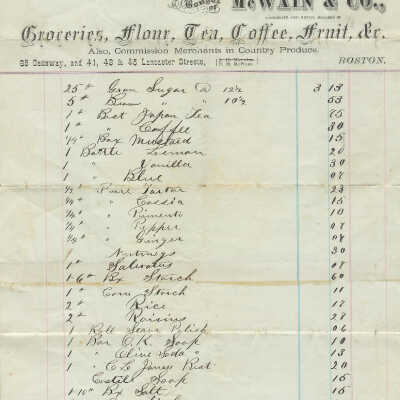 Bought of McWAIN & CO.,
Groceries, Flour, Tea, Coffee, Fruit, &c.
Also, Commission Merchants in Country Produce.
Causeway, and 41, 43 & 45 Lancaster Streets, BOSTON.
25 " Gran Sugar @ 12½ 3 13
5 " " " 10½ 53
1 " Best Japan Tea 75
1 " " Coffee 30
¼ " Box Mustard 15
1 Bottle Lemon 20
1 " Vanilla 30
1 " Blue 07
½ " Pure Tartar 23
¼ " " Cassia 15
¼ " " Pimento 10
¼ " " Pepper 07
¼ " " Ginger 07
1 Nutmegs 30
1 " Salaratus 07
1 6 " Bx Starch 60
1 " Corn Starch 11
2 " Rice 17
2 " Raisins 28
1 Roll Stove Polish 06
1 Bar O.K. Soap 10
1 " Olive Soda " 13
1 " Best 20
Castile Soap 15
1 10 " Bx Salt 15